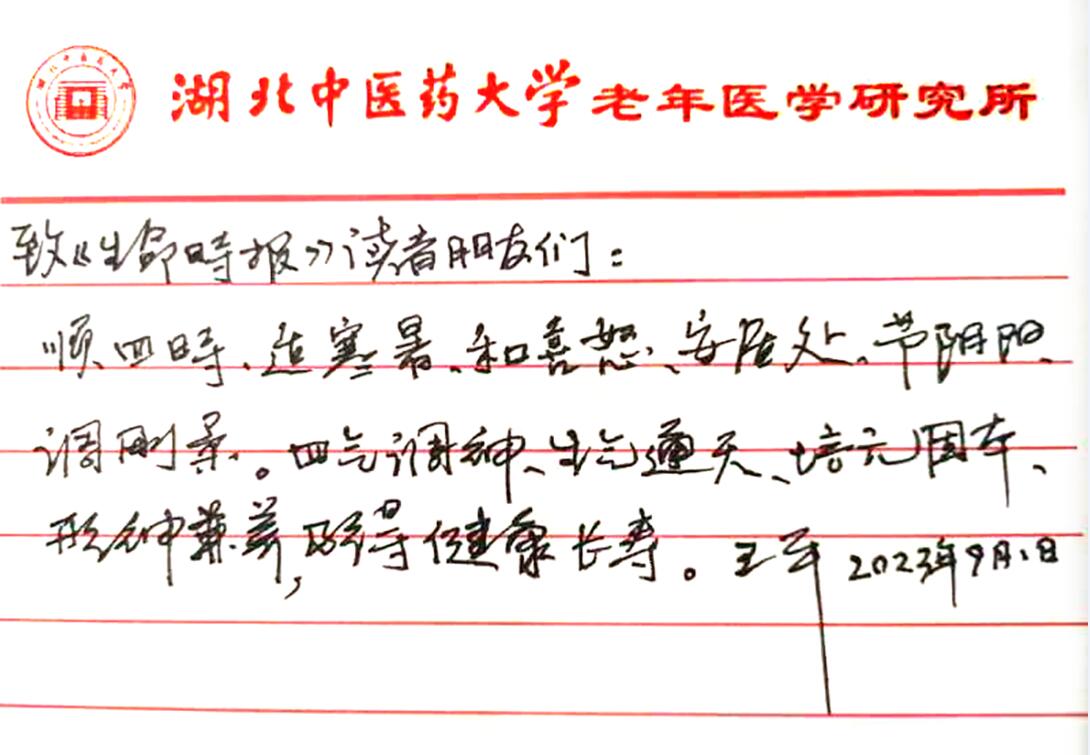 湖北中医药大学
湖北中医药大学老年医学研究所
致《生命時报》读者朋友们：
顺四時、适寒暑、和喜怒、安居处、节阴阳、
调刚柔。四气调神、生气通天、培元固本、
形神兼养，必得健康长寿。王平 2023年9月1日